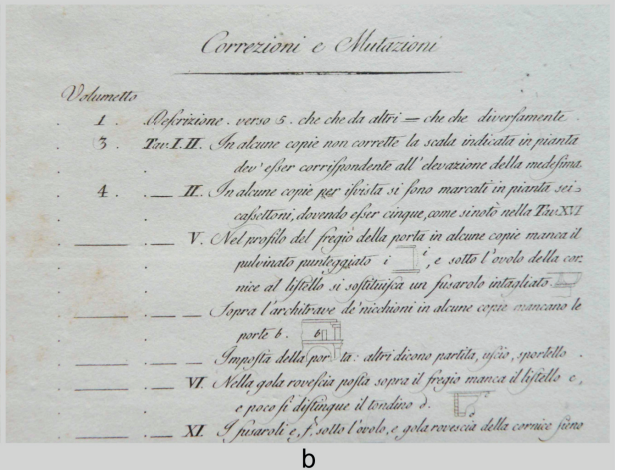 Correzioni e Mutazioni
Volumetto
1. Descrizione. verso 5. che che da altri = che che diversamente.
3. Tav. I. II. In alcune copie non corrette la scala indicata in pianta
dev' esser corrispondente all' elevazione della medesima.
4. __ II. In alcune copie per isvista si sono marcati in pianta sei
cassettoni, dovendo esser cinque, come si notò nella Tav. XVI
__ V. Nel profilo del fregio della porta in alcune copie manca il
pulvinato punteggiato i i, e sotto l'ovolo della cor-
nice al listello si sostituisca un fusarolo intagliato.
__ Sopra l'architrave de' nicchioni in alcune copie mancano le
porte b. b
__ Imposta della porta: altri dicono partita, uscio, sportello.
__ VI. Nella gola rovescia posta sopra il fregio manca il listello c,
e poco si distingue il tondino d.
__ XI. I fusaroli e, f, sotto l'ovolo, e gola rovescia della cornice sieno
b